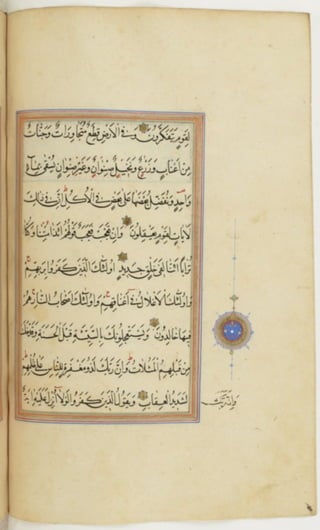 لِقَوْمٍ يَتَفَكَّرُونَ وَفِي الْأَرْضِ قِطَعٌ مُتَجَاوِرَاتٌ وَجَنَّاتٌ
مِنْ أَعْنَابٍ وَزَرْعٌ وَنَخِيلٌ صِنْوَانٌ وَغَيْرُ صِنْوَانٍ يُسْقَى بِمَاءٍ
وَاحِدٍ وَنُفَضِّلُ بَعْضَهَا عَلَى بَعْضٍ فِي الْأُكُلِ إِنَّ فِي ذَلِكَ
لَآيَاتٍ لِقَوْمٍ يَعْقِلُونَ وَإِنْ تَعْجَبْ فَعَجَبٌ قَوْلُهُمْ أَئِذَا كُنَّا
تُرَابًا أَئِنَّا لَفِي خَلْقٍ جَدِيدٍ أُولَئِكَ الَّذِينَ كَفَرُوا بِرَبِّهِمْ
وَأُولَئِكَ الْأَغْلَالُ فِي أَعْنَاقِهِمْ وَأُولَئِكَ أَصْحَابُ النَّارِ هُمْ
فِيهَا خَالِدُونَ وَيَسْتَعْجِلُونَكَ بِالسَّيِّئَةِ قَبْلَ الْحَسَنَةِ وَقَدْ خَلَتْ
مِنْ قَبْلِهِمُ الْمَثُلَاتُ وَإِنَّ رَبَّكَ لَذُو مَغْفِرَةٍ لِلنَّاسِ عَلَى ظُلْمِهِمْ
لَشَدِيدُ الْعِقَابِ وَيَقُولُ الَّذِينَ كَفَرُوا لَوْلَا أُنْزِلَ عَلَيْهِ آيَةٌ
وَإِنَّ رَبَّكَ